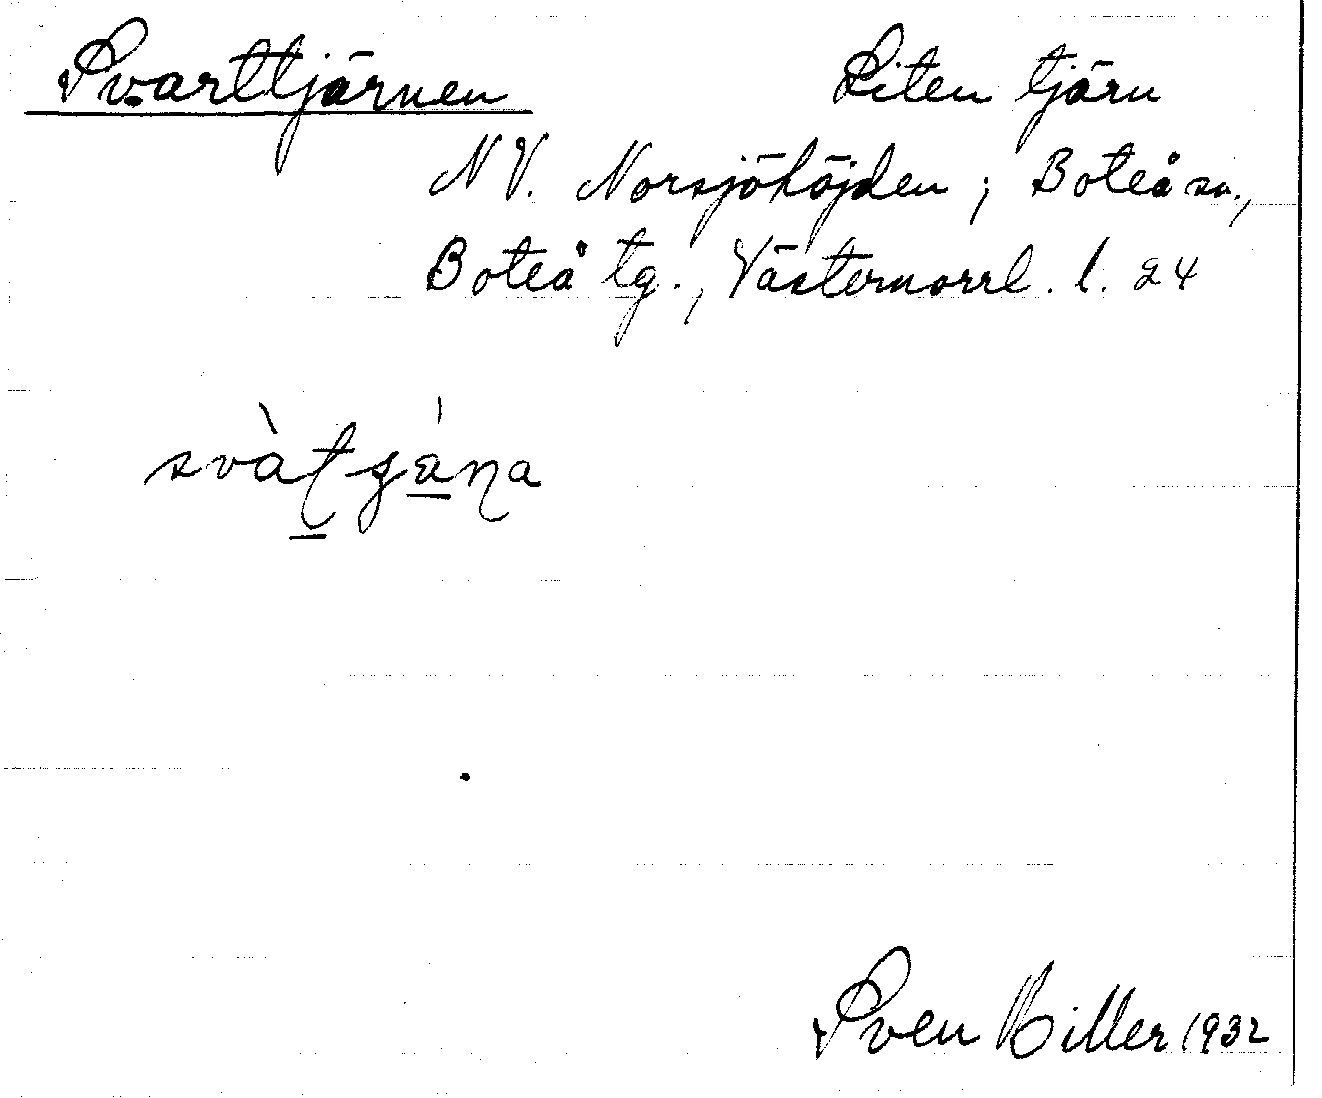 Svarttjärnen Liten tjärn
NV. Norsjöhöjden; Boteå sn.,
Boteå tg., Västernorrl. l. 24
Sven Hiller 1932